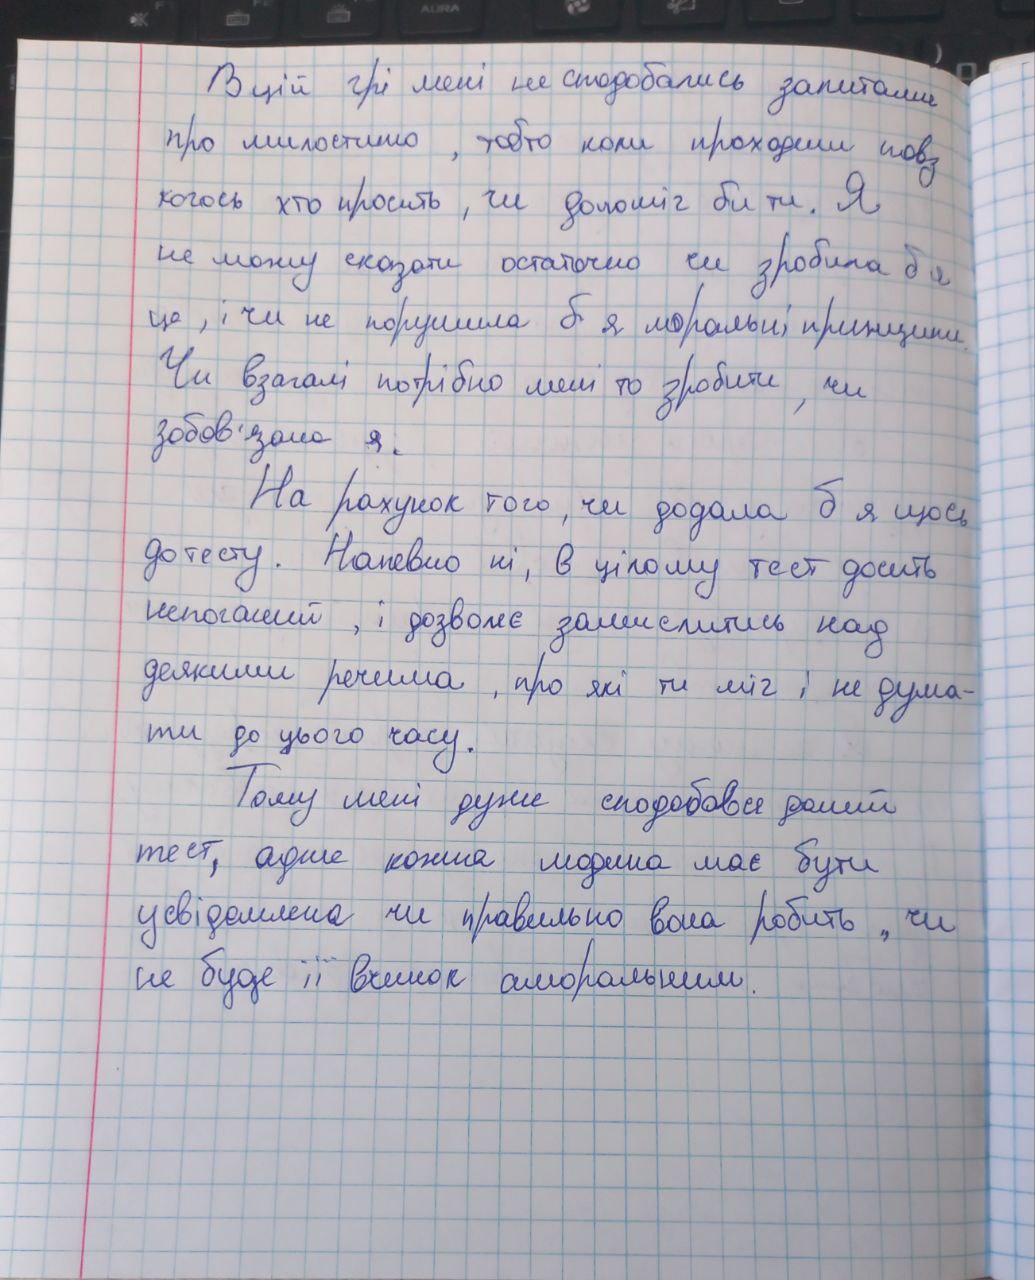 В цій грі мені не сподобались запитання
про милостиню, тобто коли проходиш повз
когось хто просить, чи допоміг би ти. Я
не можу сказати остаточно чи зробила б я
це, і чи не порушила б я моральні принципи.
Чи взагалі потрібно мені то зробити, чи
зобов'язана я.
На рахунок того, чи додала б я щось
до тесту. Напевно ні, в цілому тест досить
непоганий, і дозволяє замислитись над
деякими речима, про які ти міг і не дума-
ти до цього часу.
Тому мені дуже сподобався даний
тест, адже кожна людина має бути
усвідомлена чи правильно вона робить, чи
не буде її вчинок аморальним.